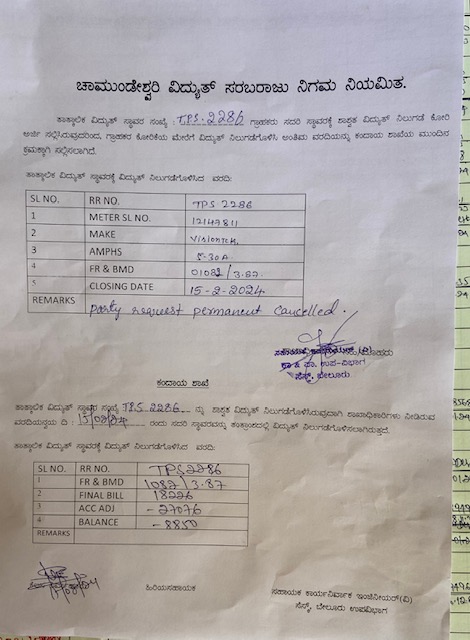 ಚಾಮುಂಡೇಶ್ವರಿ ವಿದ್ಯುತ್ ಸರಬರಾಜು ನಿಗಮ ನಿಯಮಿತ.
ತಾತ್ಕಾಲಿಕ ವಿದ್ಯುತ್ ಸ್ಥಾವರ ಸಂಖ್ಯೆ : TPS-2286 ಗ್ರಾಹಕರು ಸದರಿ ಸ್ಥಾವರಕ್ಕೆ ಶಾಶ್ವತ ವಿದ್ಯುತ್ ನಿಲುಗಡೆ ಕೋರಿ
ಅರ್ಜಿ ಸಲ್ಲಿಸಿರುವುದರಿಂದ, ಗ್ರಾಹಕರ ಕೋರಿಕೆಯ ಮೇರೆಗೆ ವಿದ್ಯುತ್ ನಿಲುಗಡೆಗೊಳಿಸಿ ಅಂತಿಮ ವರದಿಯನ್ನು ಕಂದಾಯ ಶಾಖೆಯ ಮುಂದಿನ
ಕ್ರಮಕ್ಕಾಗಿ ಸಲ್ಲಿಸಲಾಗಿದೆ.
ತಾತ್ಕಾಲಿಕ ವಿದ್ಯುತ್ ಸ್ಥಾವರಕ್ಕೆ ವಿದ್ಯುತ್ ನಿಲುಗಡೆಗೊಳಿಸಿದ ವರದಿ:
SL NO. RR NO. TPS 2286
1 METER SL NO. 12147811
2 MAKE Visiontek.
3 AMPHS 5-30A
4 FR & BMD 01082/3.87.
5 CLOSING DATE 15-2-2024
REMARKS party request permanent cancelled.
ಕಾ & ಪಾ. ಉಪ-ವಿಭಾಗ
ಸೆಸ್ಕ್, ಬೇಲೂರು.
ಕಂದಾಯ ಶಾಖೆ
ತಾತ್ಕಾಲಿಕ ವಿದ್ಯುತ್ ಸ್ಥಾವರ ಸಂಖ್ಯೆ TPS.2286 ನ್ನು ಶಾಶ್ವತ ವಿದ್ಯುತ್ ನಿಲುಗಡೆಗೊಳಿಸಿರುವುದಾಗಿ ಶಾಖಾಧಿಕಾರಿಗಳು ನೀಡಿರುವ
ವರದಿಯನ್ವಯ ದಿ : 15/02/24 ರಂದು ಸದರಿ ಸ್ಥಾವರವನ್ನು ತಂತ್ರಾಂಶದಲ್ಲಿ ವಿದ್ಯುತ್ ನಿಲುಗಡೆಗೊಳಿಸಲಾಗಿರುತ್ತದೆ.
ತಾತ್ಕಾಲಿಕ ವಿದ್ಯುತ್ ಸ್ಥಾವರಕ್ಕೆ ವಿದ್ಯುತ್ ನಿಲುಗಡೆಗೊಳಿಸಿದ ವರದಿ:
SL NO. RR NO. TPS2286
1 FR & BMD 1082/3.87
2 FINAL BILL 18226
3 ACC ADJ -27076
4 BALANCE -8850
REMARKS
ಹಿರಿಯಸಹಾಯಕ
ಸಹಾಯಕ ಕಾರ್ಯನಿರ್ವಾಹಕ ಇಂಜಿನೀಯರ್(ವಿ)
ಸೆಸ್ಕ್, ಬೇಲೂರು ಉಪವಿಭಾಗ